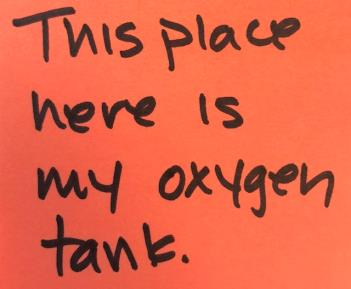 This place
here is
my oxygen
tank.